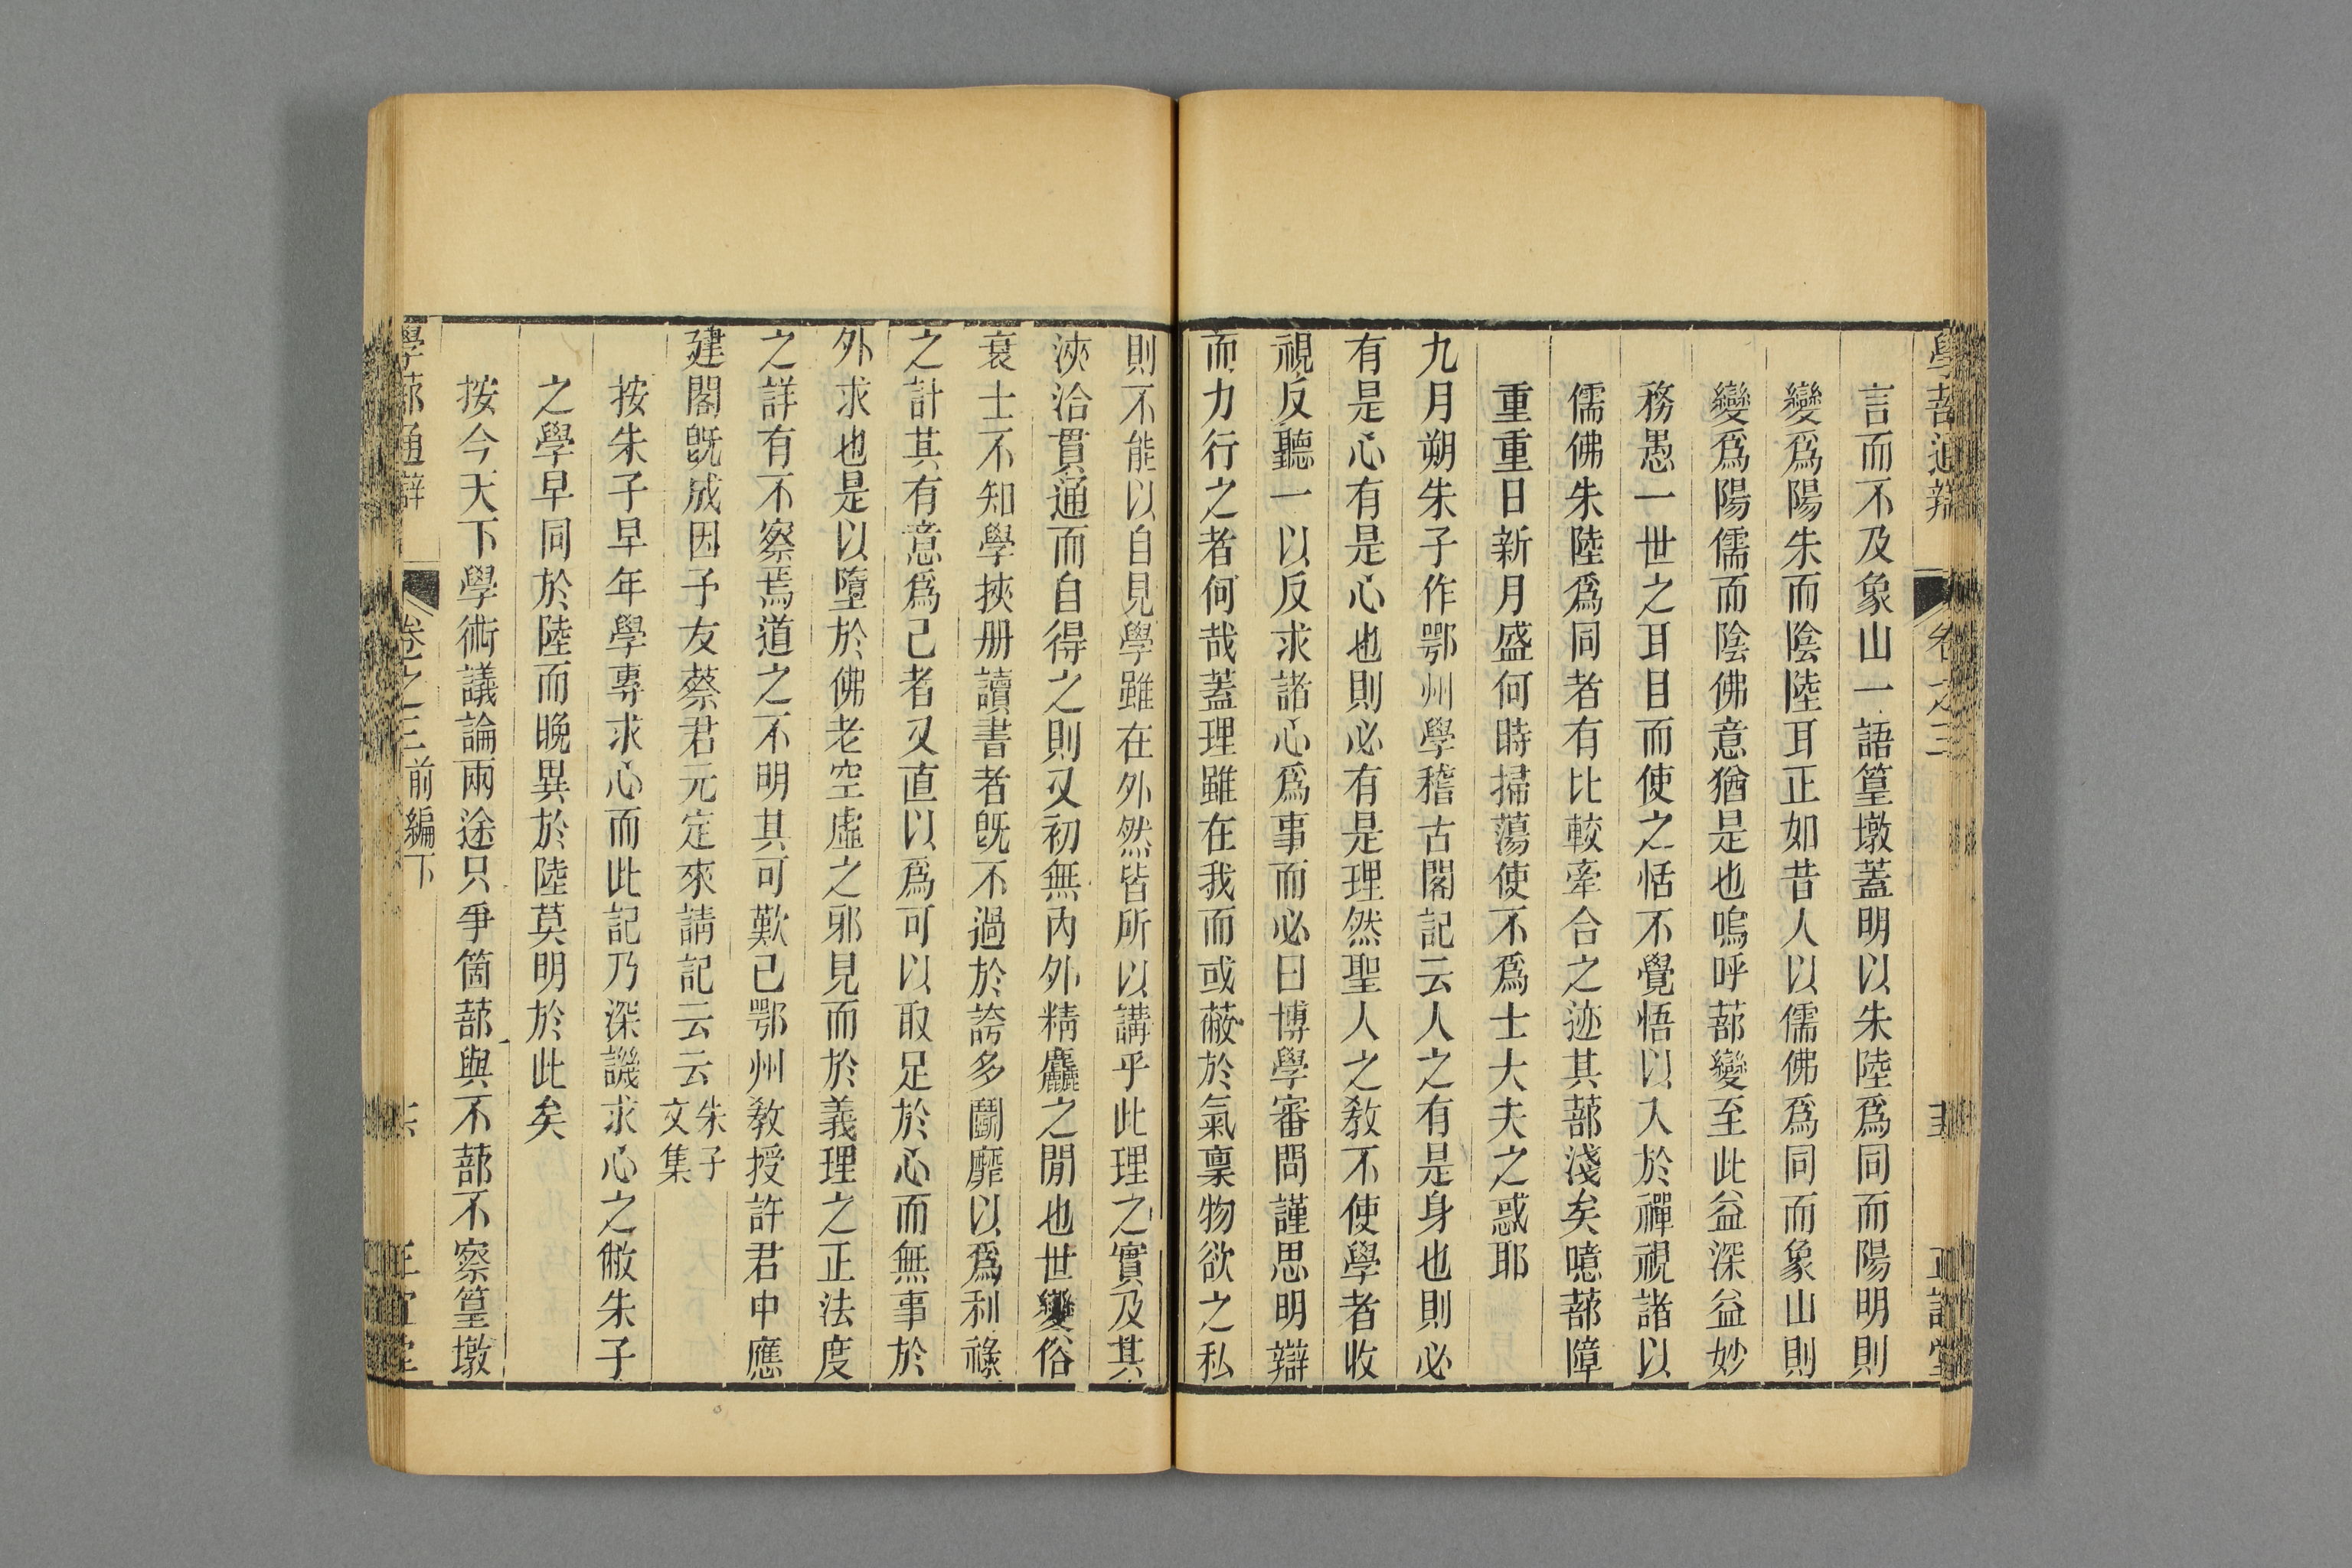 言而不及象山一語篁墩蓋明以朱陸爲同而陽明則
變爲陽朱而陰陸耳正如昔人以儒佛爲同而象山則
變爲陽儒而陰佛意猶是也嗚呼蔀變至此益深益妙
務愚一世之耳目而使之恬不覺悟以入於禪視諸以
儒佛朱陸爲同者有比較牽合之迹其蔀淺矣噫蔀障
重重日新月盛何時掃蕩使不爲士大夫之惑耶
九月朔朱子作鄂州學稽古閣記云人之有是身也則必
有是心有是心也則必有是理然聖人之教不使學者收
視反聽一以反求諸心爲事而必曰博學審問謹思明辯
而力行之者何哉蓋理雖在我而或蔽於氣稟物欲之私
則不能以自見學雖在外然皆所以講乎此理之實及其
浹洽貫通而自得之則又初無內外精麤之閒也世變俗
衰士不知學挾册讀書者旣不過於誇多鬭靡以爲利祿
之計其有意爲己者又直以爲可以取足於心而無事於
外求也是以墮於佛老空虛之邪見而於義理之正法度
之詳有不察焉道之不明其可歎已鄂州教授許君中應
建閣旣成因予友蔡君元定來請記云云朱子
文集
按朱子早年學專求心而此記乃深譏求心之敝朱子
之學早同於陸而晩異於陸莫明於此矣
按今天下學術議論兩途只爭箇蔀與不蔀不察篁墩
學蔀通辯 卷之三 前編下